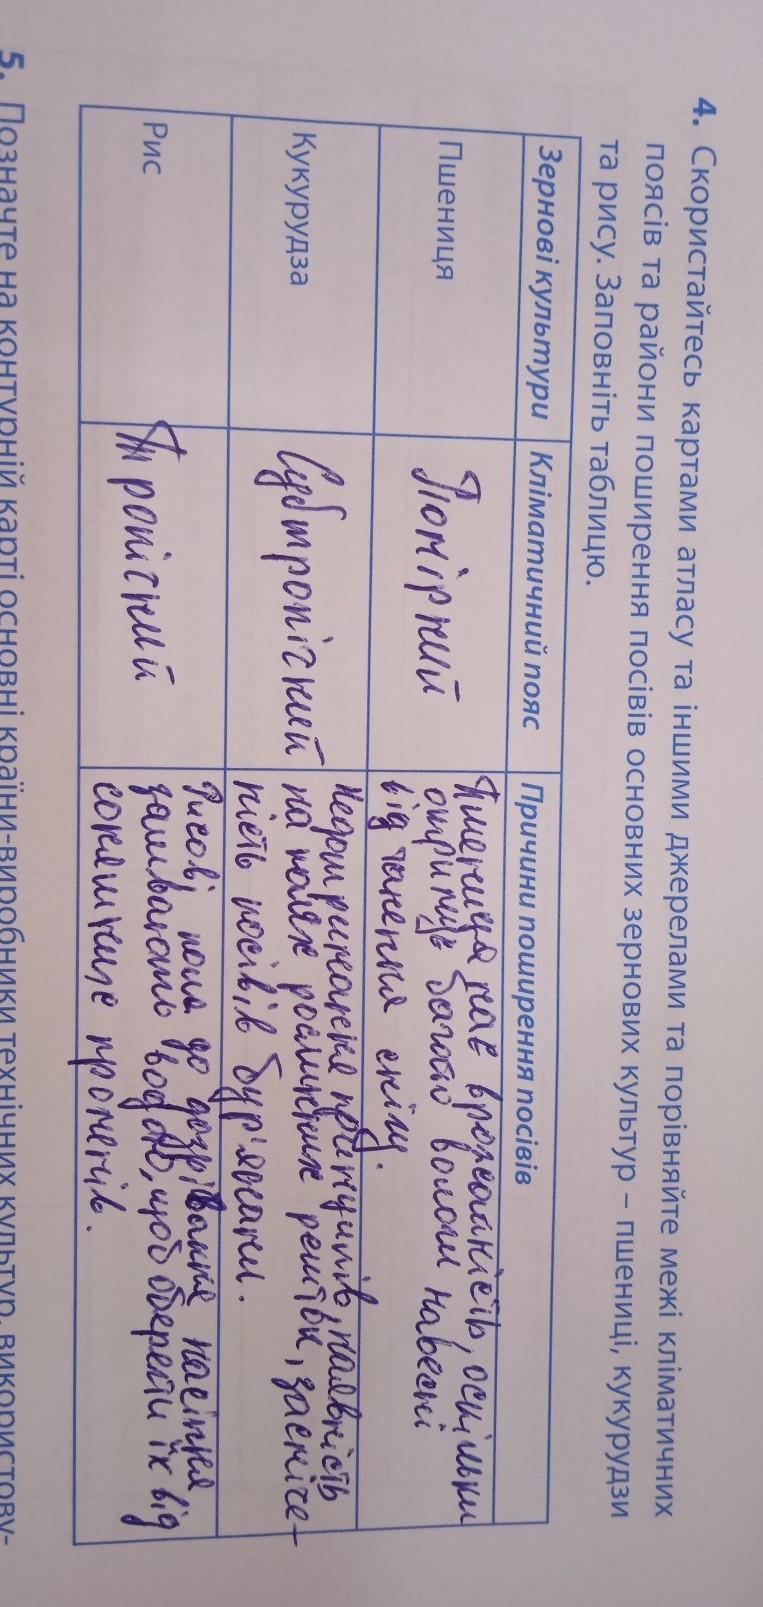 4. Скористайтесь картами атласу та іншими джерелами та порівняйте межі кліматичних
поясів та райони поширення посівів основних зернових культур – пшениці, кукурудзи
та рису. Заповніть таблицю.
Зернові культури Кліматичний пояс Причини поширення посівів
Пшениця Помірний Пшениця має врожайність, оскільки
отримує багато вологи навесні
від танення снігу.
Кукурудза Субтропічний Недотримання принципів, наявність
на полях рослинних решток, засміче-
ність посівів бур'янами.
Рис Тропічний Рисові поля до дозрівання насіння
заливають водою, щоб оберегти їх від
сонячних променів.
5. Позначте на контурній карті основні країни-виробники технічних культур, використову-